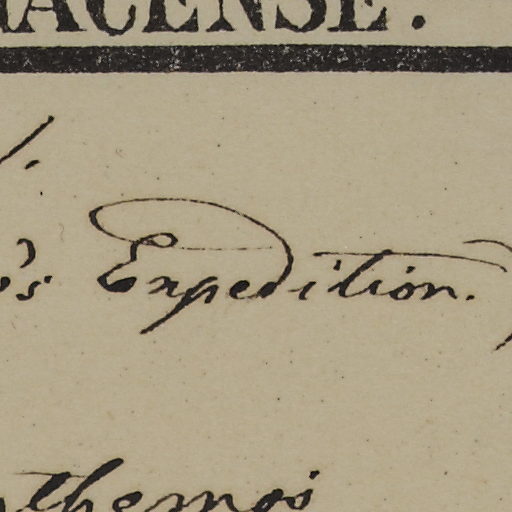 ACENSE.
's Expedition.
themos